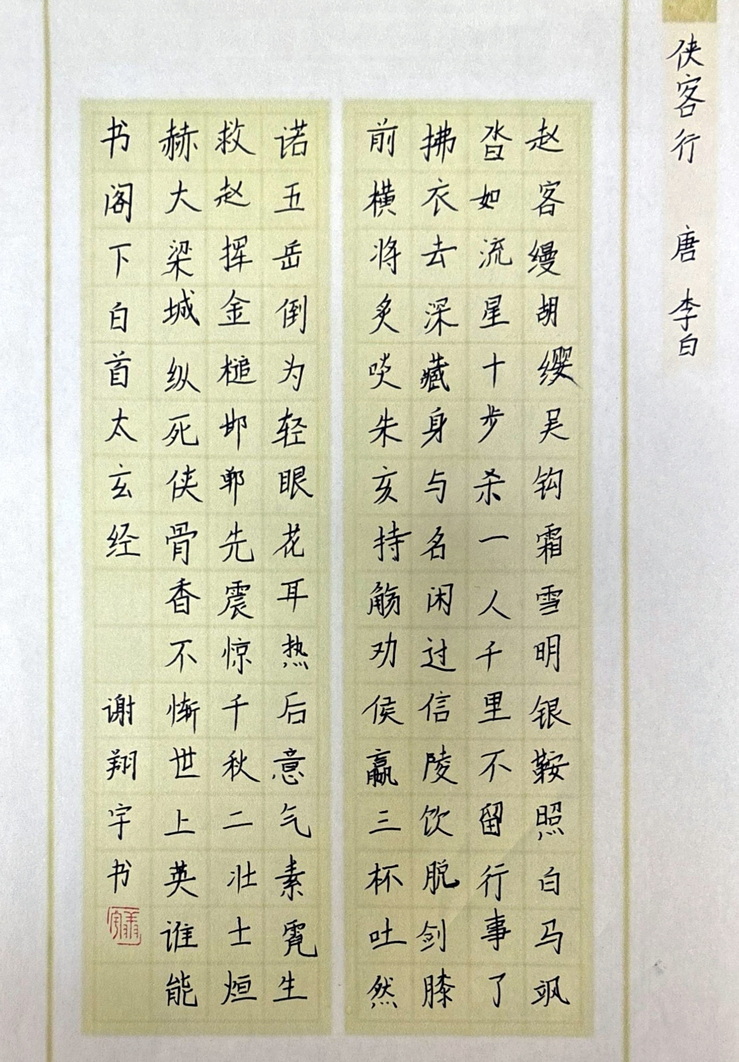 侠客行 唐 李白
赵客缦胡缨吴钩霜雪明银鞍照白马飒
沓如流星十步杀一人千里不留行事了
拂衣去深藏身与名闲过信陵饮脱剑膝
前横将炙啖朱亥持觞劝侯嬴三杯吐然
诺五岳倒为轻眼花耳热后意气素霓生
救赵挥金槌邯郸先震惊千秋二壮士烜
赫大梁城纵死侠骨香不惭世上英谁能
书阁下白首太玄经 谢翔宇书